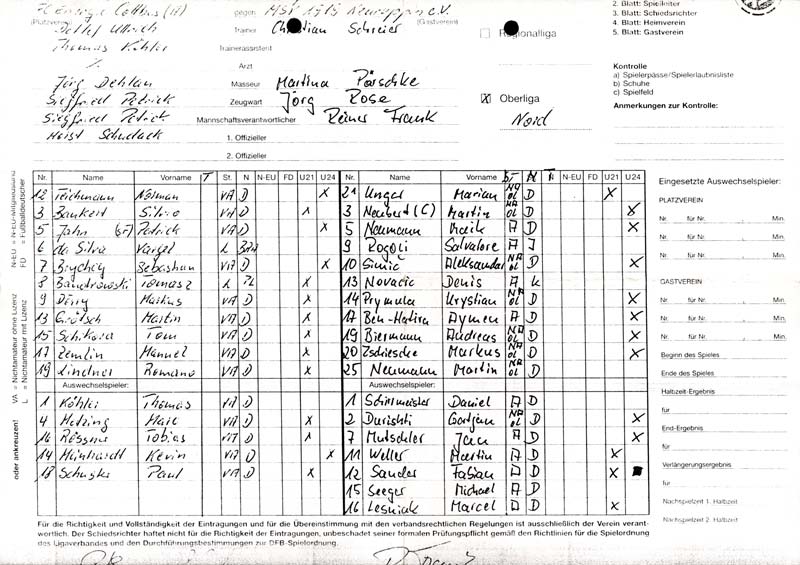 FC Energie Cottbus (A) gegen MSV 1919 Neuruppin e.V.
(Platzverein) (Gastverein)
Detlef Ullrich Trainer Christian Schreier
Thomas Köhler Trainerassistent
Arzt
Jörg Dehlan Masseur Martina Pörschke
Siegfried Petrick Zeugwart Jörg Rose
Siegfried Petrick Mannschaftsverantwortlicher Reiner Frank
Horst Schudack 1. Offizieller
2. Offizieller
Regionalliga
X Oberliga
Nord
2. Blatt: Spielleiter
3. Blatt: Schiedsrichter
4. Blatt: Heimverein
5. Blatt: Gastverein
Kontrolle
a) Spielerpässe/Spielerlaubnisliste
b) Schuhe
c) Spielfeld
Anmerkungen zur Kontrolle:
Nr. Name Vorname T St. N N-EU FD U21 U24 Nr. Name Vorname St N T N-EU FD U21 U24
12 Teichmann Norman VA D X 21 Unger Marian NA OL D X
3 Bankert Silvio VA D X 3 Neubert (C) Martin NA OL D X
5 Jahn (SF) Patrick VA D X 5 Neumann Maik A D X
6 da Silva L 9 Rogoli Salvatore A I
7 Brychcy Sebastian VA D X 10 Simic Aleksandar NA OL D X
8 Bandrowski Tomasz L PL X 13 Novacic Denis A K
9 Dörry Markus VA D X 14 Prymula Krystian NA OL D X
13 Grötsch Martin VA D X 17 Ben-Hatira Aymen A D X
15 Schikora Tom VA D X 19 Biermann Andreas NA OL D X
17 Zemlin Manuel VA D X 20 Zschiesche Markus NA OL D X
19 Lindner Romano VA D X 25 Neumann Martin NA OL D
Auswechselspieler: Auswechselspieler:
1 Köhler Thomas VA D 1 Schirrmeister Daniel A D
4 Hetzing Marc VA D X 2 Durishti NA OL D X
16 Rössner Tobias VA D X 7 Mutschler Jan A D X
14 Meinhardt Kevin VA D X 11 Weller Martin A D X
18 Paul VA D X 12 Sander Fabian A D
15 Seeger Michael A D
16 Lesniak Marcel A D X
Eingesetzte Auswechselspieler:
PLATZVEREIN
Nr. für Nr. Min.
Nr. für Nr. Min.
Nr. für Nr. Min.
GASTVEREIN
Nr. für Nr. Min.
Nr. für Nr. Min.
Nr. für Nr. Min.
Beginn des Spieles
Ende des Spieles
Halbzeit-Ergebnis
für
End-Ergebnis
für
Verlängerungsergebnis
für
Nachspielzeit 1. Halbzeit
Nachspielzeit 2. Halbzeit
FD = Fußballdeutscher
VA = Nichtamateur ohne Lizenz
L = Nichtamateur mit Lizenz
oder ankreuzen!
Für die Richtigkeit und Vollständigkeit der Eintragungen und für die Übereinstimmung mit den verbandsrechtlichen Regelungen ist ausschließlich der Verein verant-
wortlich. Der Schiedsrichter haftet nicht für die Richtigkeit der Eintragungen, unbeschadet seiner formalen Prüfungspflicht gemäß den Richtlinien für die Spielordnung
des Ligaverbandes und den Durchführungsbestimmungen zur DFB-Spielordnung.